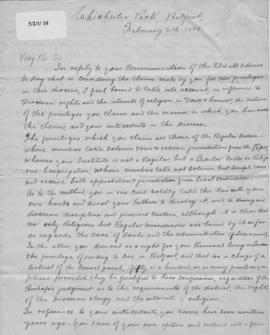 5/2/1/ 10
Chichester Park, Belfast,
February 6th 18
Very Rev.
In reply to your Communication of the 23rd ult I desire
to say that in considering the claims made by you for new privileges
in this diocese, I feel bound to take into account, in reference to
Diocesan rights and the interests of religion in Down & Connor, the nature
of the privileges you claim and the manner in which you
the claims and your antecedents in the Diocese.
The privileges which you claim are those of the Regular Orders
whose members take Solemn vows & receive jurisdiction from the Pope,
whereas your Institute is not a Regular but a Secular Code or Religi-
ous Congregation whose members take not solemn but simple vows
and receive both approbation & jurisdiction from Local
As to the method, you in one case boldly take the law into your
own hands and direct your Fathers to disobey it, and to disregard
diocesan discipline and previous custom, although it is clear that
not only Religious but Regular Communities are bound by it as far
as regards the case of and the administration of
In the other you demand as a right for your Communal living under
the privilege of sending to live in Belfast, and that too in charge of a
district of the parish, or a hundred, or as many priests as you
please provided they be qualified to hear confessions, regardless of the
Bishop's judgment as to the requirements of the district, the rights
of the diocesan clergy and the interests of religion.
In reference to your antecedents, you came here some nineteen
years ago. You came of your own option and entered into a